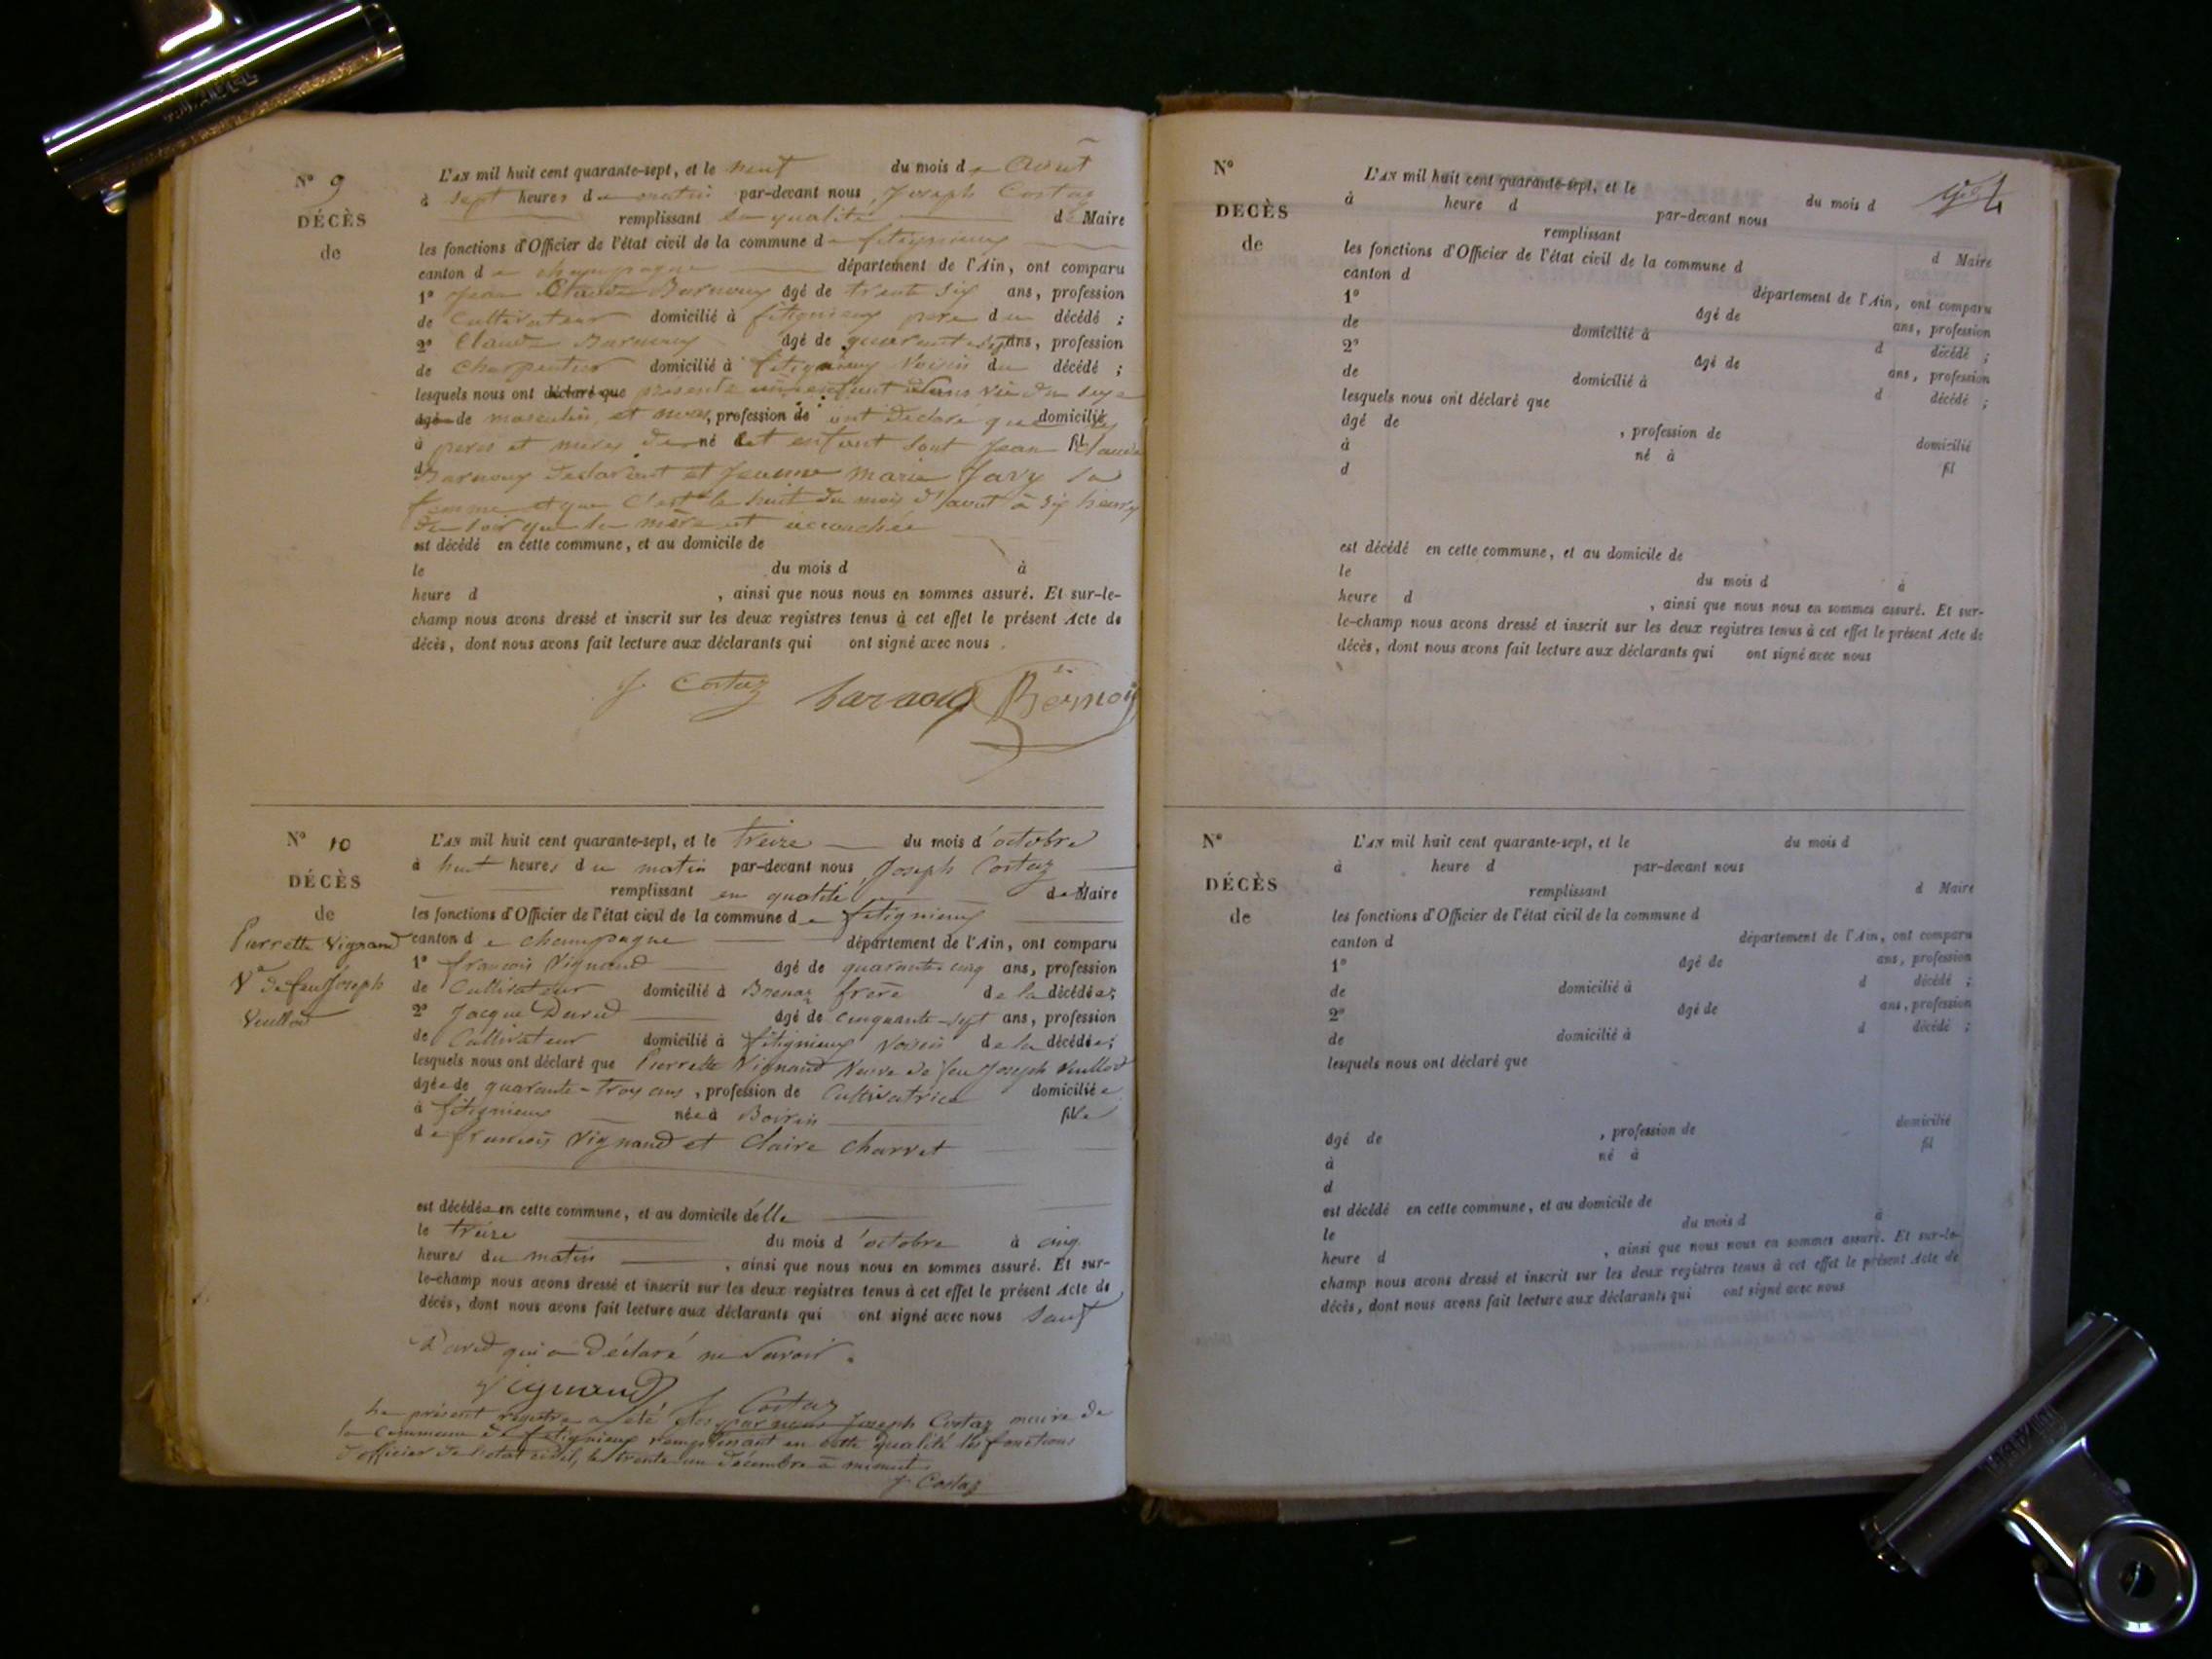 N° 9
DÉCÈS
de
L'AN mil huit cent quarante-sept, et le neuf du mois de Aout
à sept heures de matin par-devant nous, Joseph Costaz
remplissant sa qualité de Maire
les fonctions d'Officier de l'état civil de la commune de fitignieux
canton de champagne département de l'Ain, ont comparu
1° Jean Claude Barnoux âgé de trente six ans, profession
de Cultivateur domicilié à fitignieux pere du décédé ;
2° Claude Barnoux âgé de quarante sept ans, profession
de Charpentier domicilié à fitignieux Voisin du décédé ;
lesquels nous ont déclaré que presenté un enfant sans vie du sexe
âgé de masculin, et nous, profession de ont declaré que les domicilié
à peres et meres de né cet enfant sont Jean fil Claude
d Barnoux declarant et Jeanne Marie Javy sa
femme et que C'est le huit du mois d'aout à six heures
du soir que la mère est accouchée
est décédé en cette commune, et au domicile de
le du mois d à
heure d , ainsi que nous nous en sommes assuré. Et sur-le-
champ nous avons dressé et inscrit sur les deux registres tenus à cet effet le présent Acte de
décès, dont nous avons fait lecture aux déclarants qui ont signé avec nous .
J. Costaz barnoux
N° 10
DÉCÈS
de
Pierrette Vignand
Ve de feu Joseph
Veullod
L'AN mil huit cent quarante-sept, et le treize du mois d'octobre
à huit heures du matin par-devant nous, Joseph Costaz
remplissant en qualité de Maire
les fonctions d'Officier de l'état civil de la commune de fitignieux
canton de champagne département de l'Ain, ont comparu
1° francois Vignand âgé de quarante cinq ans, profession
de Cultivateur domicilié à Brenaz frere de la décédée;
2° Jacque Dured âgé de cinquante-sept ans, profession
de Cultivateur domicilié à fitignieux voisin de la décédée;
lesquels nous ont déclaré que Pierrette Vignand Veuve de feu Joseph Veullod
âgée de quarante-trois ans, profession de Cultivatrice domiciliée
à fitignieux née à Boirin fille
de francois Vignand et Claire Charvet
est décédée en cette commune, et au domicile d'elle
le treize du mois d'octobre à cinq
heures du matin , ainsi que nous nous en sommes assuré. Et sur-
le-champ nous avons dressé et inscrit sur les deux registres tenus à cet effet le présent Acte de
décès, dont nous avons fait lecture aux déclarants qui ont signé avec nous Sauf
Dured qui a déclaré ne savoir.
Vignand J. Costaz
Le présent registre a été clos par nous Joseph Costaz maire de
la commune de fitignieux remplissant en cette qualité les fonctions
d'officier de l'etat civil, le trente un décembre à minuit
J. Costaz
N°
DÉCÈS
de
L'AN mil huit cent quarante-sept, et le du mois d
à heure d par-devant nous
remplissant d Maire
les fonctions d'Officier de l'état civil de la commune d
canton d département de l'Ain, ont comparu
1° âgé de ans, profession
de domicilié à d décédé ;
2° âgé de ans, profession
de domicilié à d décédé ;
lesquels nous ont déclaré que
âgé de , profession de domicilié
à né à fil
d
est décédé en cette commune, et au domicile de
le du mois d à
heure d , ainsi que nous nous en sommes assuré. Et sur-
le-champ nous avons dressé et inscrit sur les deux registres tenus à cet effet le présent Acte de
décès, dont nous avons fait lecture aux déclarants qui ont signé avec nous
N°
DÉCÈS
de
L'AN mil huit cent quarante-sept, et le du mois d
à heure d par-devant nous
remplissant d Maire
les fonctions d'Officier de l'état civil de la commune d
canton d département de l'Ain, ont comparu
1° âgé de ans, profession
de domicilié à d décédé ;
2° âgé de ans, profession
de domicilié à d décédé ;
lesquels nous ont déclaré que
âgé de , profession de domicilié
à né à fil
d
est décédé en cette commune, et au domicile de
le du mois d à
heure d , ainsi que nous nous en sommes assuré. Et sur-le-
champ nous avons dressé et inscrit sur les deux registres tenus à cet effet le présent Acte de
décès, dont nous avons fait lecture aux déclarants qui ont signé avec nous